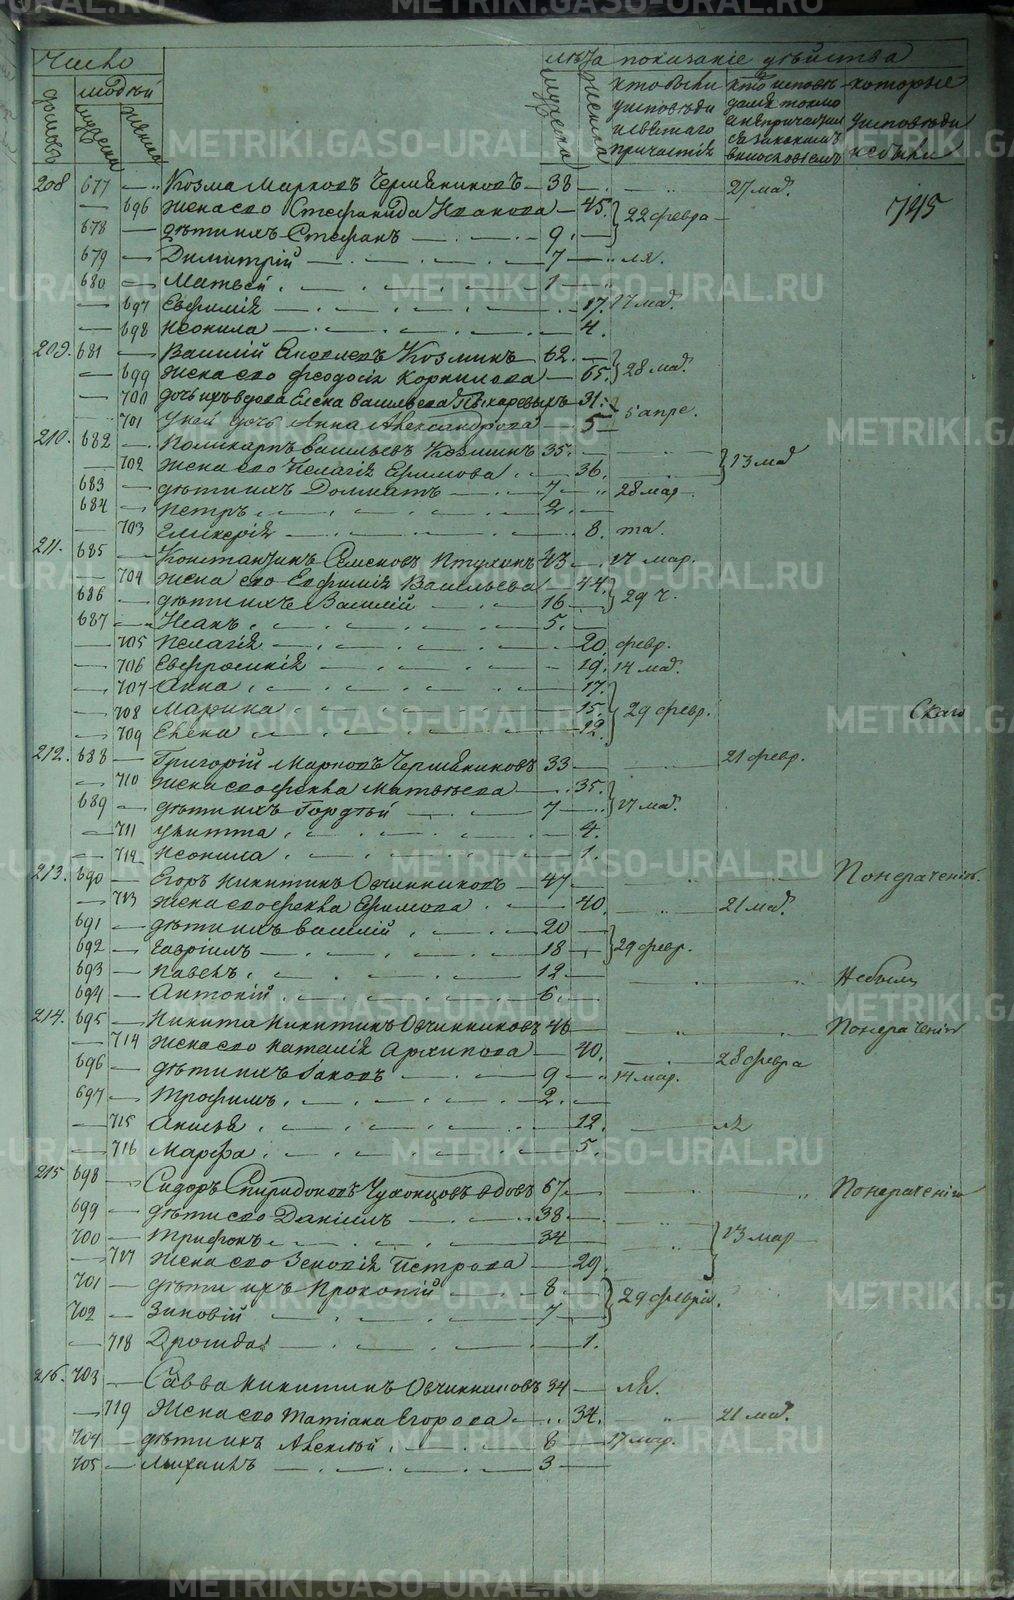 Число
лѣта показанiе дѣйства
домовъ
людей
мужеска
женска
мужеска
женска
кто были у исповѣди и святаго причастiя
кто исповѣдался токмо а не причастился
которые у исповѣди не были
745
208 677 Козма Марковъ Червяниковъ 38 27 мар.
696 жена его Стефанида Иванова 45. 22 февра
678 дѣти ихъ Стефанъ 9.
679 Димитрiй 7 ля.
680 Матвей 1
697 Евфимiя 17. 17 мар.
698 Неонила 4.
209. 681 Василiй Козминъ 62.
699 жена его Феодосiя Корнилова 65. 28 мар.
700 дочь ихъ вдова Елена Васильева 31.
701 у ней дочь Анна Александрова 5 5 апре.
210. 682 Поликарпъ Васильевъ Козминъ 35.
702 жена его Пелагiя Ефимова 36. 13 мар
683 дѣти ихъ Долматъ 7 28 мар
684 Петръ 2.
703 Гликерiя 8. та.
211. 685 Константинъ Семеновъ Птухинъ 43 17 мар.
704 жена его Евфимiя Васильева 44.
686 дѣти ихъ Василiй 16 29 ч.
687 Иванъ 5.
705 Пелагiя 20 февр.
706 Евфросинiя 19. 14 мар.
707 Анна 17.
708 Марина 15. 29 февр.
709 Елена 12.
Скаго
212. 688 Григорiй Марковъ Червяниковъ 33 21 февр.
710 жена его Фекла Матвѣева 35.
689 дѣти ихъ Гордѣй 7 17 мар.
711 Улитта 4.
712 Неонила 1.
213. 690 Егоръ Никитинъ Овчинниковъ 47 Понераченiю
713 жена его Фекла Ефимова 40. 21 мар.
691 дѣти ихъ Василiй 20
692 Гаврiилъ 18 29 февр.
693 Павелъ 12 Небылъ
694 Антонiй 6.
214. 695 Никита Никитинъ Овчинниковъ 46 Понераченiю
714 жена его Наталiя Архипова 40. 28 февра
696 дѣти ихъ Іаковъ 9 14 мар.
697 Трофимъ 2.
715 Анисья 12. ля
716 Марфа 5.
215 698 Сидоръ Спиридоновъ Чухонцовъ вдовъ 67 Понераченiю
699 дѣти его Данiилъ 38
700 Трифонъ 34 13 мар
717 жена его Зеновiя Петрова 29.
701 дѣти ихъ Прокопiй 8 29 февраля.
702 Зиновiй 7
718 Дросида 1.
216. 703 Савва Никитинъ Овчинниковъ 34 ля.
719 жена его Татiана Егорова 34. 21 мар.
704 дѣти ихъ Алексѣй 8 17 мар.
705 Михаилъ 3